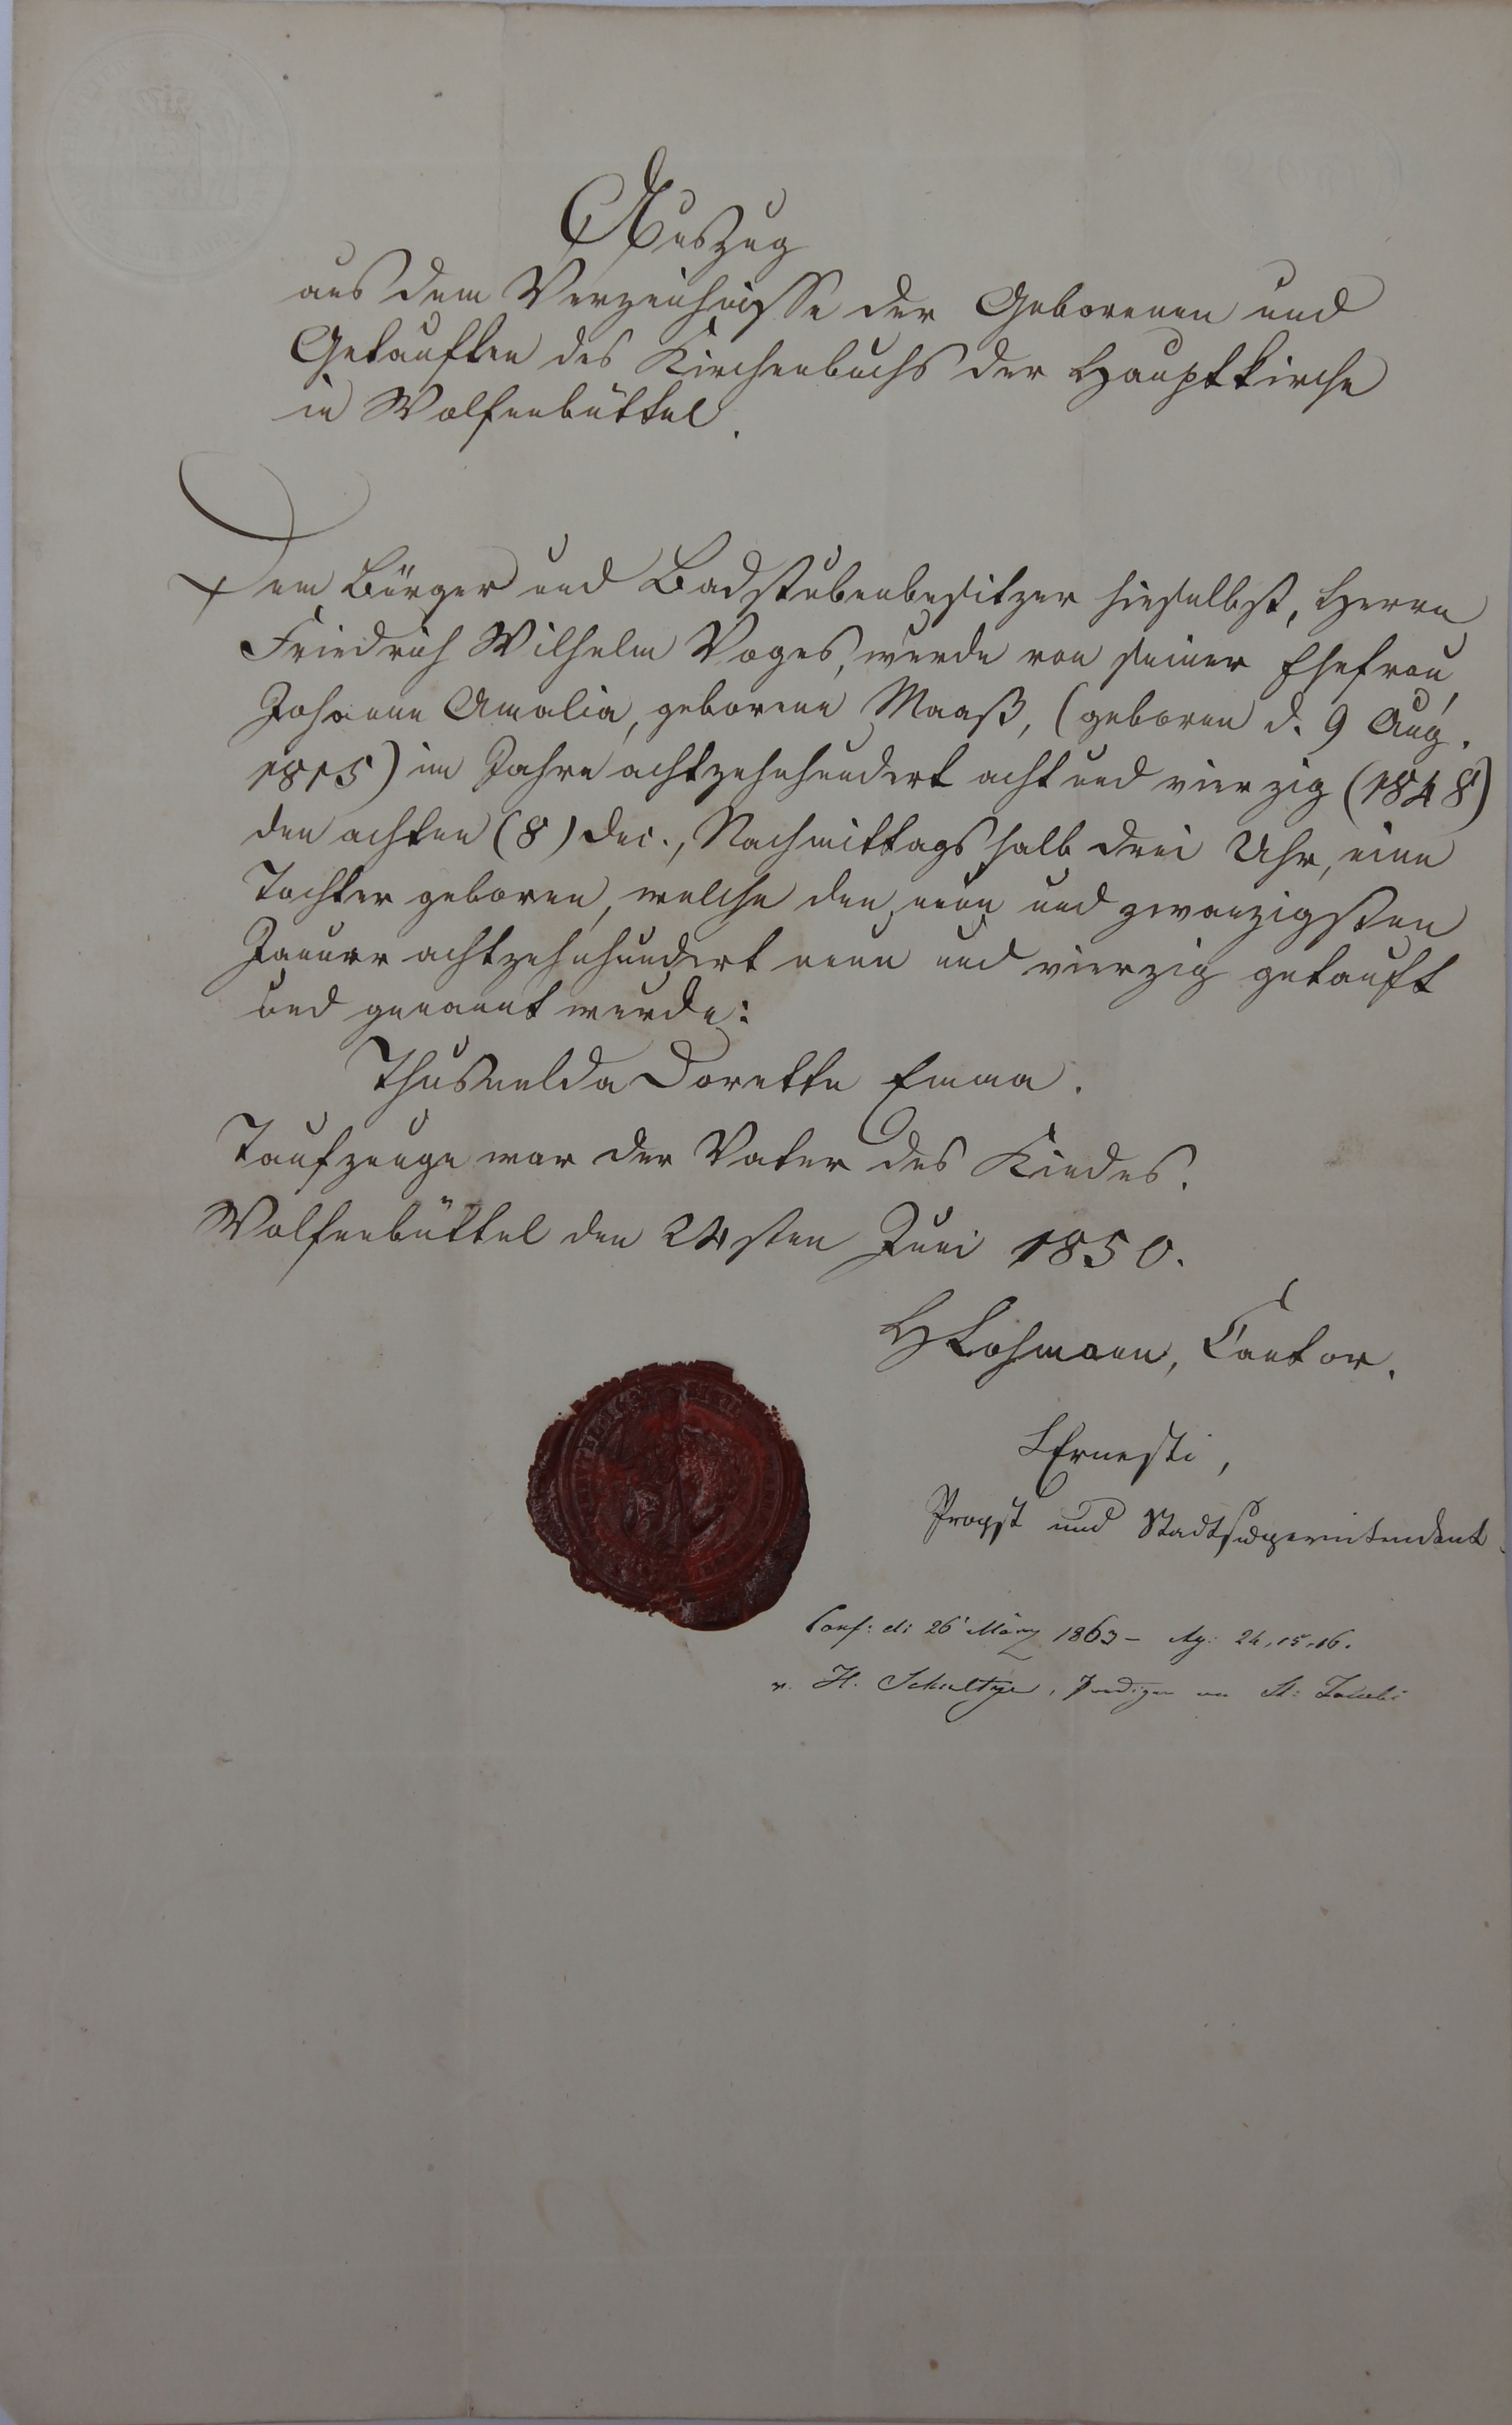 Auszug
aus dem Verzeichnisse der Geborenen und
Getauften des Kirchenbuchs der Hauptkirche
in Wolfenbüttel.
Dem Bürger und Badstubenbesitzer hieselbst, Herrn
Friedrich Wilhelm Voges, wurde von seiner Ehefrau
Johanne Amalia, geborene Maaß, (geboren d. 9 Aug.
1815) im Jahre achtzehnhundert acht und vierzig (1848)
den achten (8) Dec., Nachmittags halb drei Uhr, eine
Tochter geboren, welche den neun und zwanzigsten
Januar achtzehnhundert neun und vierzig getauft
und genannt wurde:
Thusnelda Dorette Emma.
Taufzeuge war der Vater des Kindes.
Wolfenbüttel den 24sten Juni 1850.
HLohmann, Cantor.
LErnesti,
Propst und Stadtsuperintendent.
Conf: d: 26 März 1863 - 24, 15, 16.
v. H. Schultze, Prediger an St: Jacobi